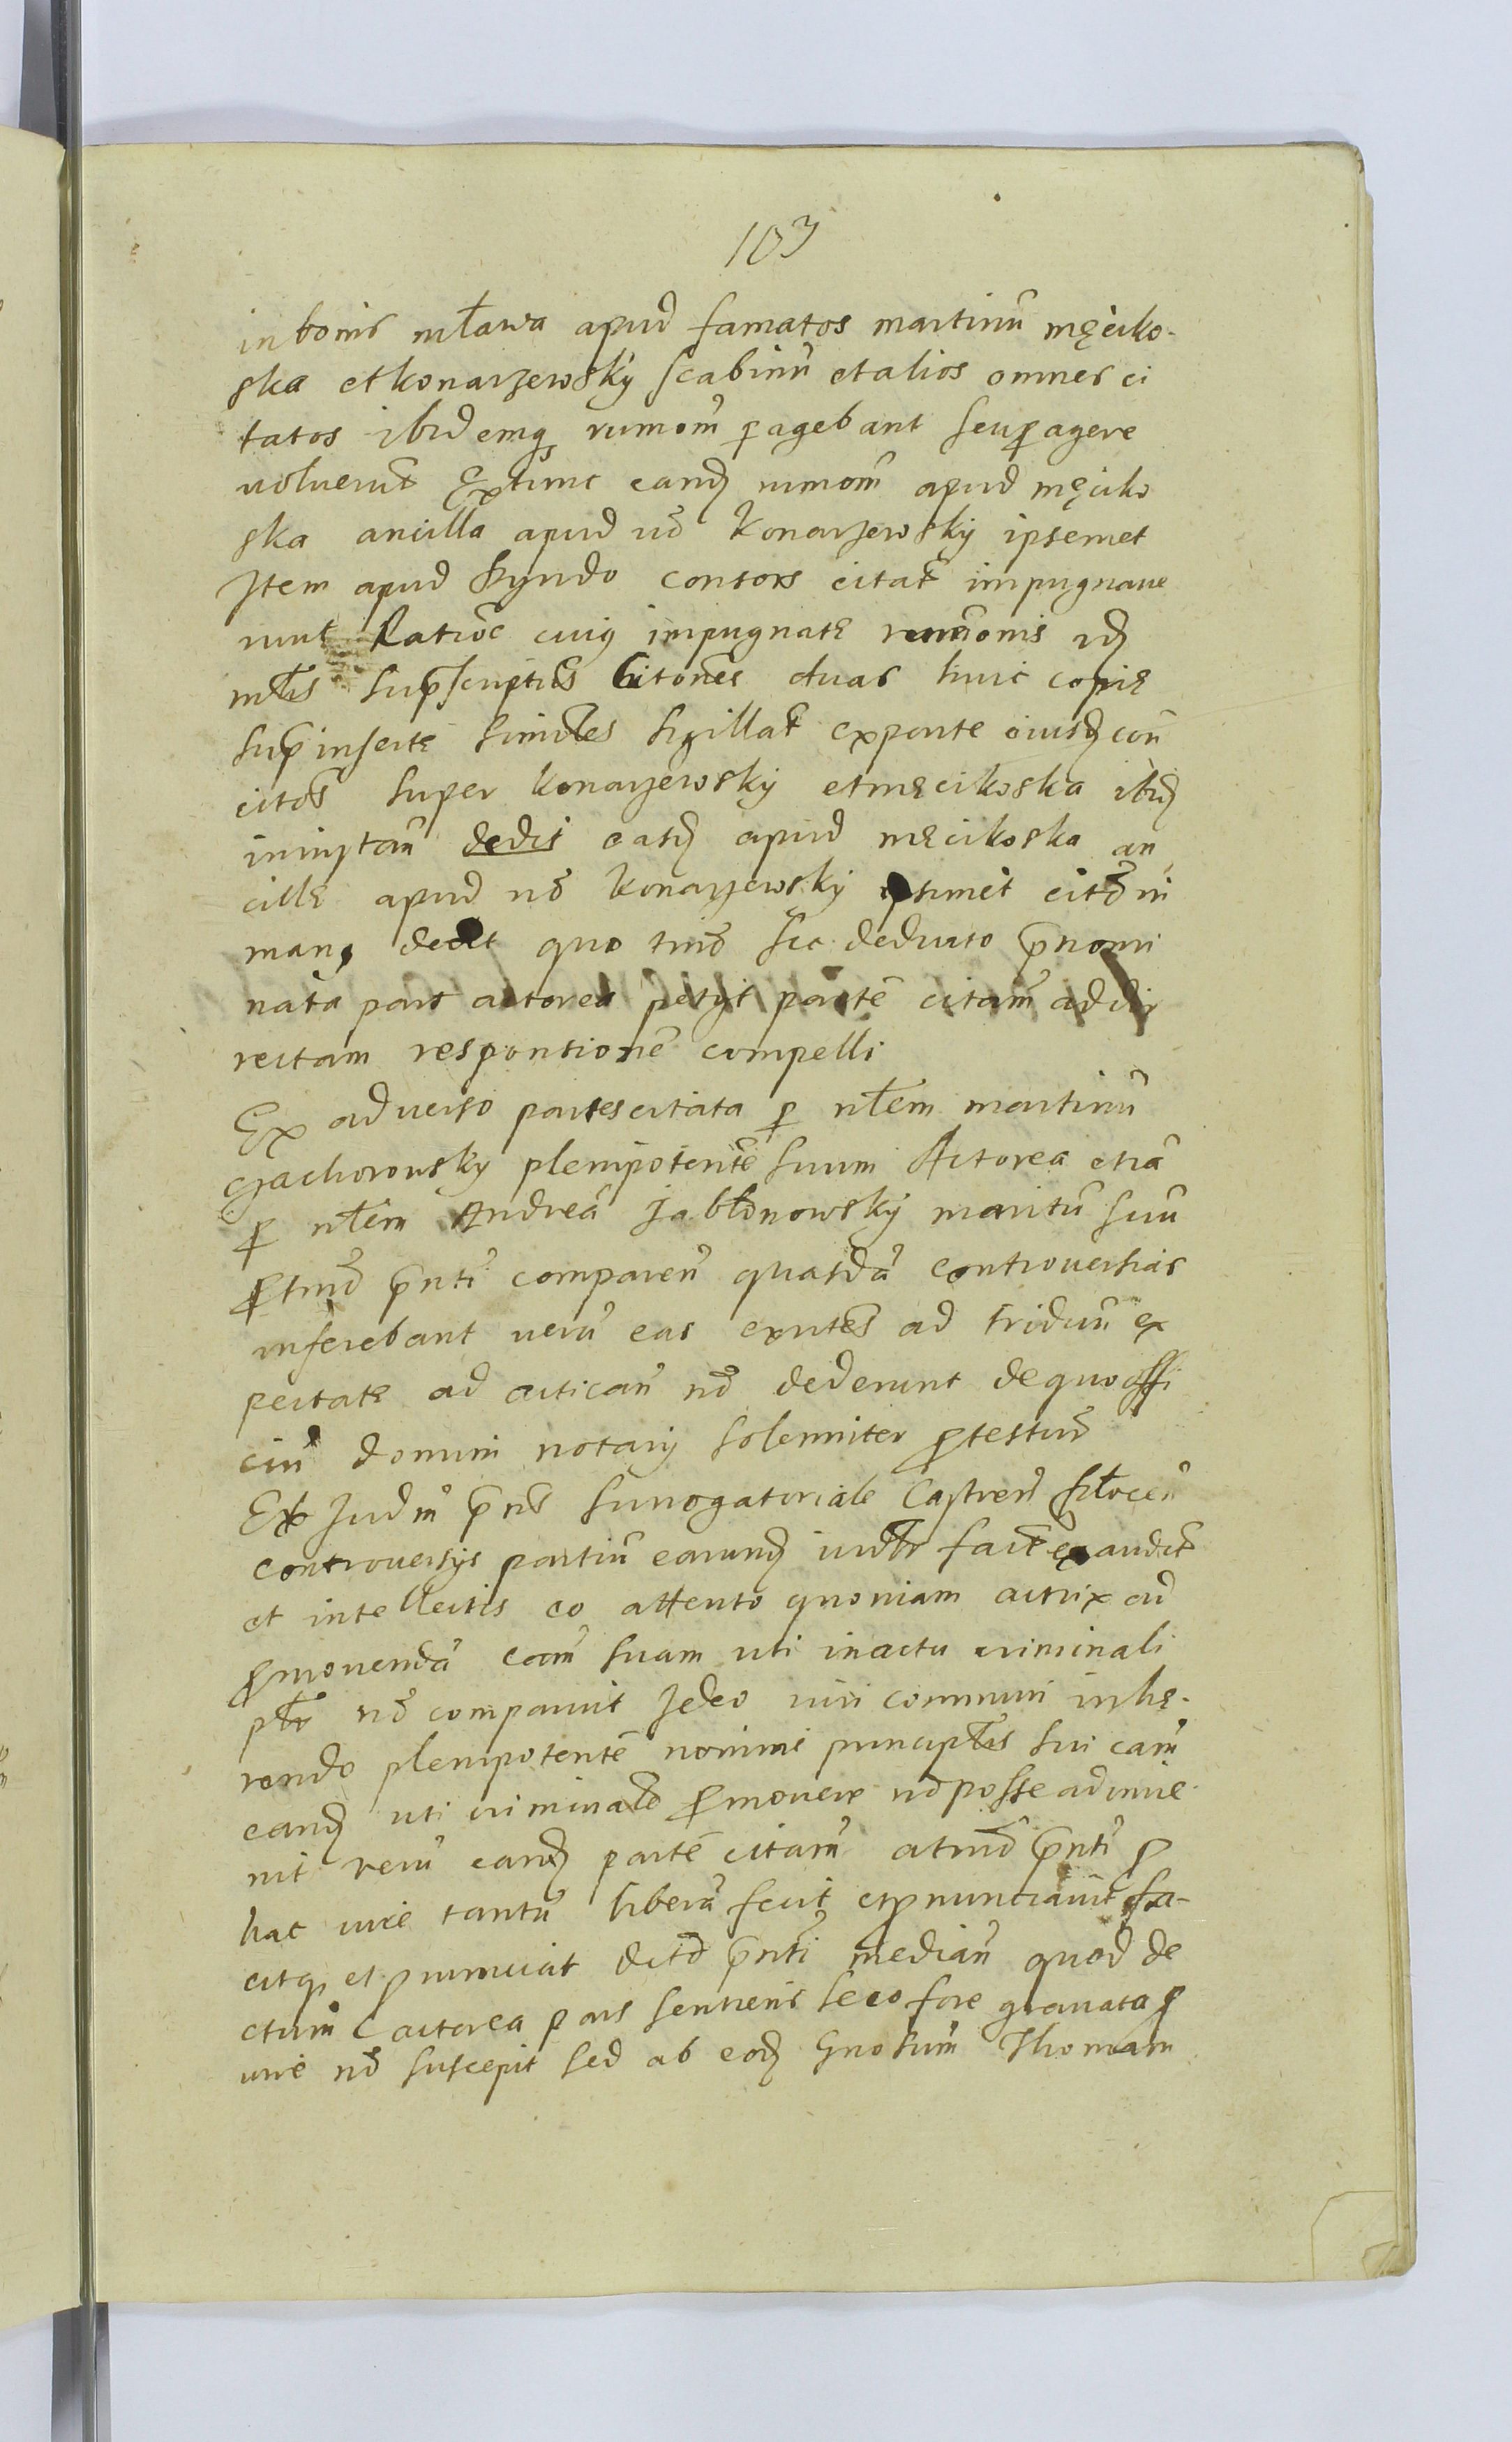 103
in bonis mława apud famatos martinū męciko-
ska et konarzewsky scabinū et alios omnes ci
tatos ibidemq rumom̄ pagebant seu pagere
voluerūt Extunc eand rumom̄ apud męciko
ska ancilla apud vō konarzewsky ipsemet
Item apud consors citat̄ impugnave
runt Ratiōe cuiq impugnatę remōnis
mł̄is sup̄scriptūs citōnes duas huic copię
sup̄ insertę simłes sigillat̄ ex parte eiusd con
citōs super konarzewsky et męcikoska ibid
dedit easd apud męcikoska an
cillę apud vō konarzewsky ipsimet citō in
manq dedit quo tmō sic deducto p̄nomi
nata pars actorea petyt partē citam̄ ad dir
rectam responsionē compelli
Ex adverso partes citata p nłem martinū
plenipotentē suum Actorea etiā
p nłem Andreā Jabłonowsky maritū suū
p tmō p̄nti comparen̄ quasdā controversias
inferebant verū eas exntēs ad triduū ex
pectatę ad actican̄ nō dederunt de quo offi
ciū domini notarij solemniter ptestur
Et Judm̄ p̄ns surrogatoriale Castren̄
controversys partiū earund
et intellectis eo attento quoniam actrix ad
pmovendā cam̄ suam uti in actu criminali
plr nō comparuit Ideo iuri communi inhę-
rendo plenipotentē nomine principłis sui cam̄
eand uti criminalē pmovere nō posse adinve-
nit verū eand partē citam̄ a tmō p̄nti p
hac vice tantū liberā fecit et pnunciavit fa-
citq et pnunciat dctō p̄nti median̄ quod de
ctum actorea pars sentiens se eo fore gravata p
vre nō suscepit sed ab eod Gnosum̄ Thomam